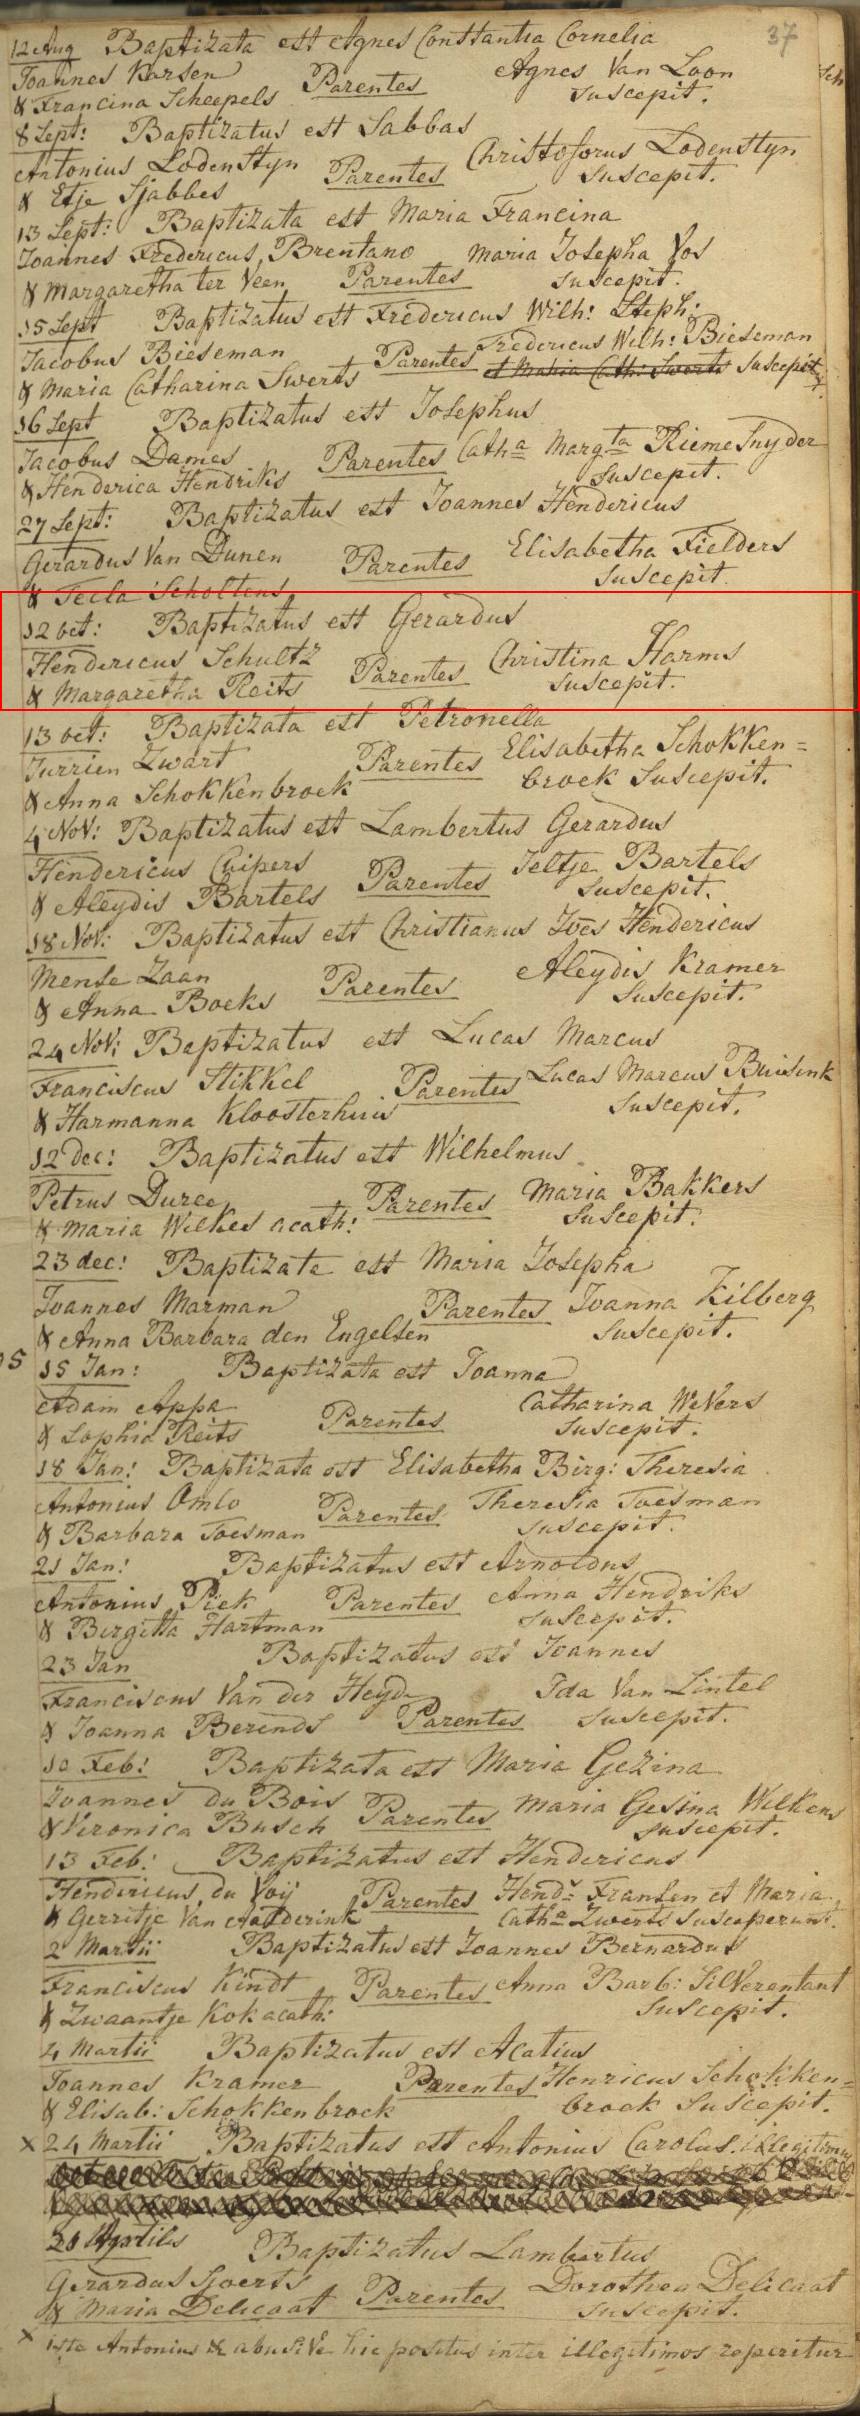 37
12 Aug Baptizata est Agnes Constantia Cornelia
Joannes Karsen Parentes Agnes Van Loon
& Francina Scheepels suscepit.
8 Sept: Baptizatus est Sabbas
Antonius Lodenstyn Parentes Christoforus Lodenstyn
& Etje Sjabbes suscepit.
13 Sept: Baptizata est Maria Francina
Joannes Fredericus Brentano Maria Josepha Vos
& Margaretha ter Veen Parentes suscepit.
15 Sept Baptizatus est Fredericus Wilh: Steph:
Jacobus Bieseman Parentes Fredericus Wilh: Bieseman
& Maria Catharina Swerts et Maria Cath: Swerts suscepit
16 Sept Baptizatus est Josephus
Jacobus Dames Parentes Catha Margta Riemesnyder
& Henderica Hendriks suscepit.
27 Sept: Baptizatus est Joannes Hendericus
Gerardus Van Dunen Parentes Elisabetha Fielders
& Tecla Scholtens suscepit.
12 oct: Baptizatus est Gerardus
Hendericus Schultz Parentes Christina Harms
& Margaretha Reits suscepit.
13 oct: Baptizata est Petronella
Jurrien Zwart Parentes Elisabetha Schokken=
& Anna Schokkenbroek broek suscepit.
4 Nov: Baptizatus est Lambertus Gerardus
Hendericus Cuipers Parentes Jeltje Bartels
& Aleydis Bartels suscepit.
18 Nov: Baptizatus est Christianus Joes Hendericus
Mense Zaan Parentes Aleydis Kramer
& Anna Boeks suscepit.
24 Nov: Baptizatus est Lucas Marcus
Franciscus Stikkel Parentes Lucas Marcus Buisink
& Harmanna Kloosterhuis suscepit.
12 Dec: Baptizatus est Wilhelmus
Petrus Duree Parentes Maria Bakkers
& Maria Wilkes acath: suscepit.
23 dec: Baptizata est Maria Josepha
Joannes Marman Parentes Joanna Kilberg
& Anna Barbara den Engelsen suscepit.
15 Jan: Baptizata est Joanna
Adam Appa Parentes Catharina Wevers
& Sophia Reits suscepit.
18 Jan: Baptizata est Elisabetha Birg: Theresia
Antonius Omlo Parentes Theresia Toesman
& Barbara Toesman suscepit.
21 Jan: Baptizatus est Arnoldus
Antonius Piek Parentes Anna Hendriks
& Birgitta Hartman suscepit.
23 Jan Baptizatus est Joannes
Franciscus Van der Heyde Ida Van Lintel
& Joanna Berends Parentes suscepit.
10 Feb: Baptizata est Maria Gezina
Joannes du Bois Parentes Maria Gesina Wilkens
& Vironica Busch suscepit.
13 Feb: Baptizatus est Hendericus
Hendericus du Voij Parentes Hend: Fransen et Maria
& Gerritje Van Aalderink Catha Zwerts susceperunt.
2 Martii Baptizatus est Joannes Bernardus
Franciscus Kindt Parentes Anna Barb: Silverentant
& Zwaantje Kok acath: suscepit.
4 Martii Baptizatus est Acatius
Joannes Kramer Parentes Henricus Schokken=
& Elisab: Schokkenbroek broek suscepit.
x 24 Martii Baptizatus est Antonius Carolus. illegitimus
20 Aprilis Baptizatus Lambertus
Gerardus Sjoerts Parentes Dorothea Delicaat
& Maria Delicaat suscepit.
x iste Antonius abusive hic positus inter illegitimos reperitur